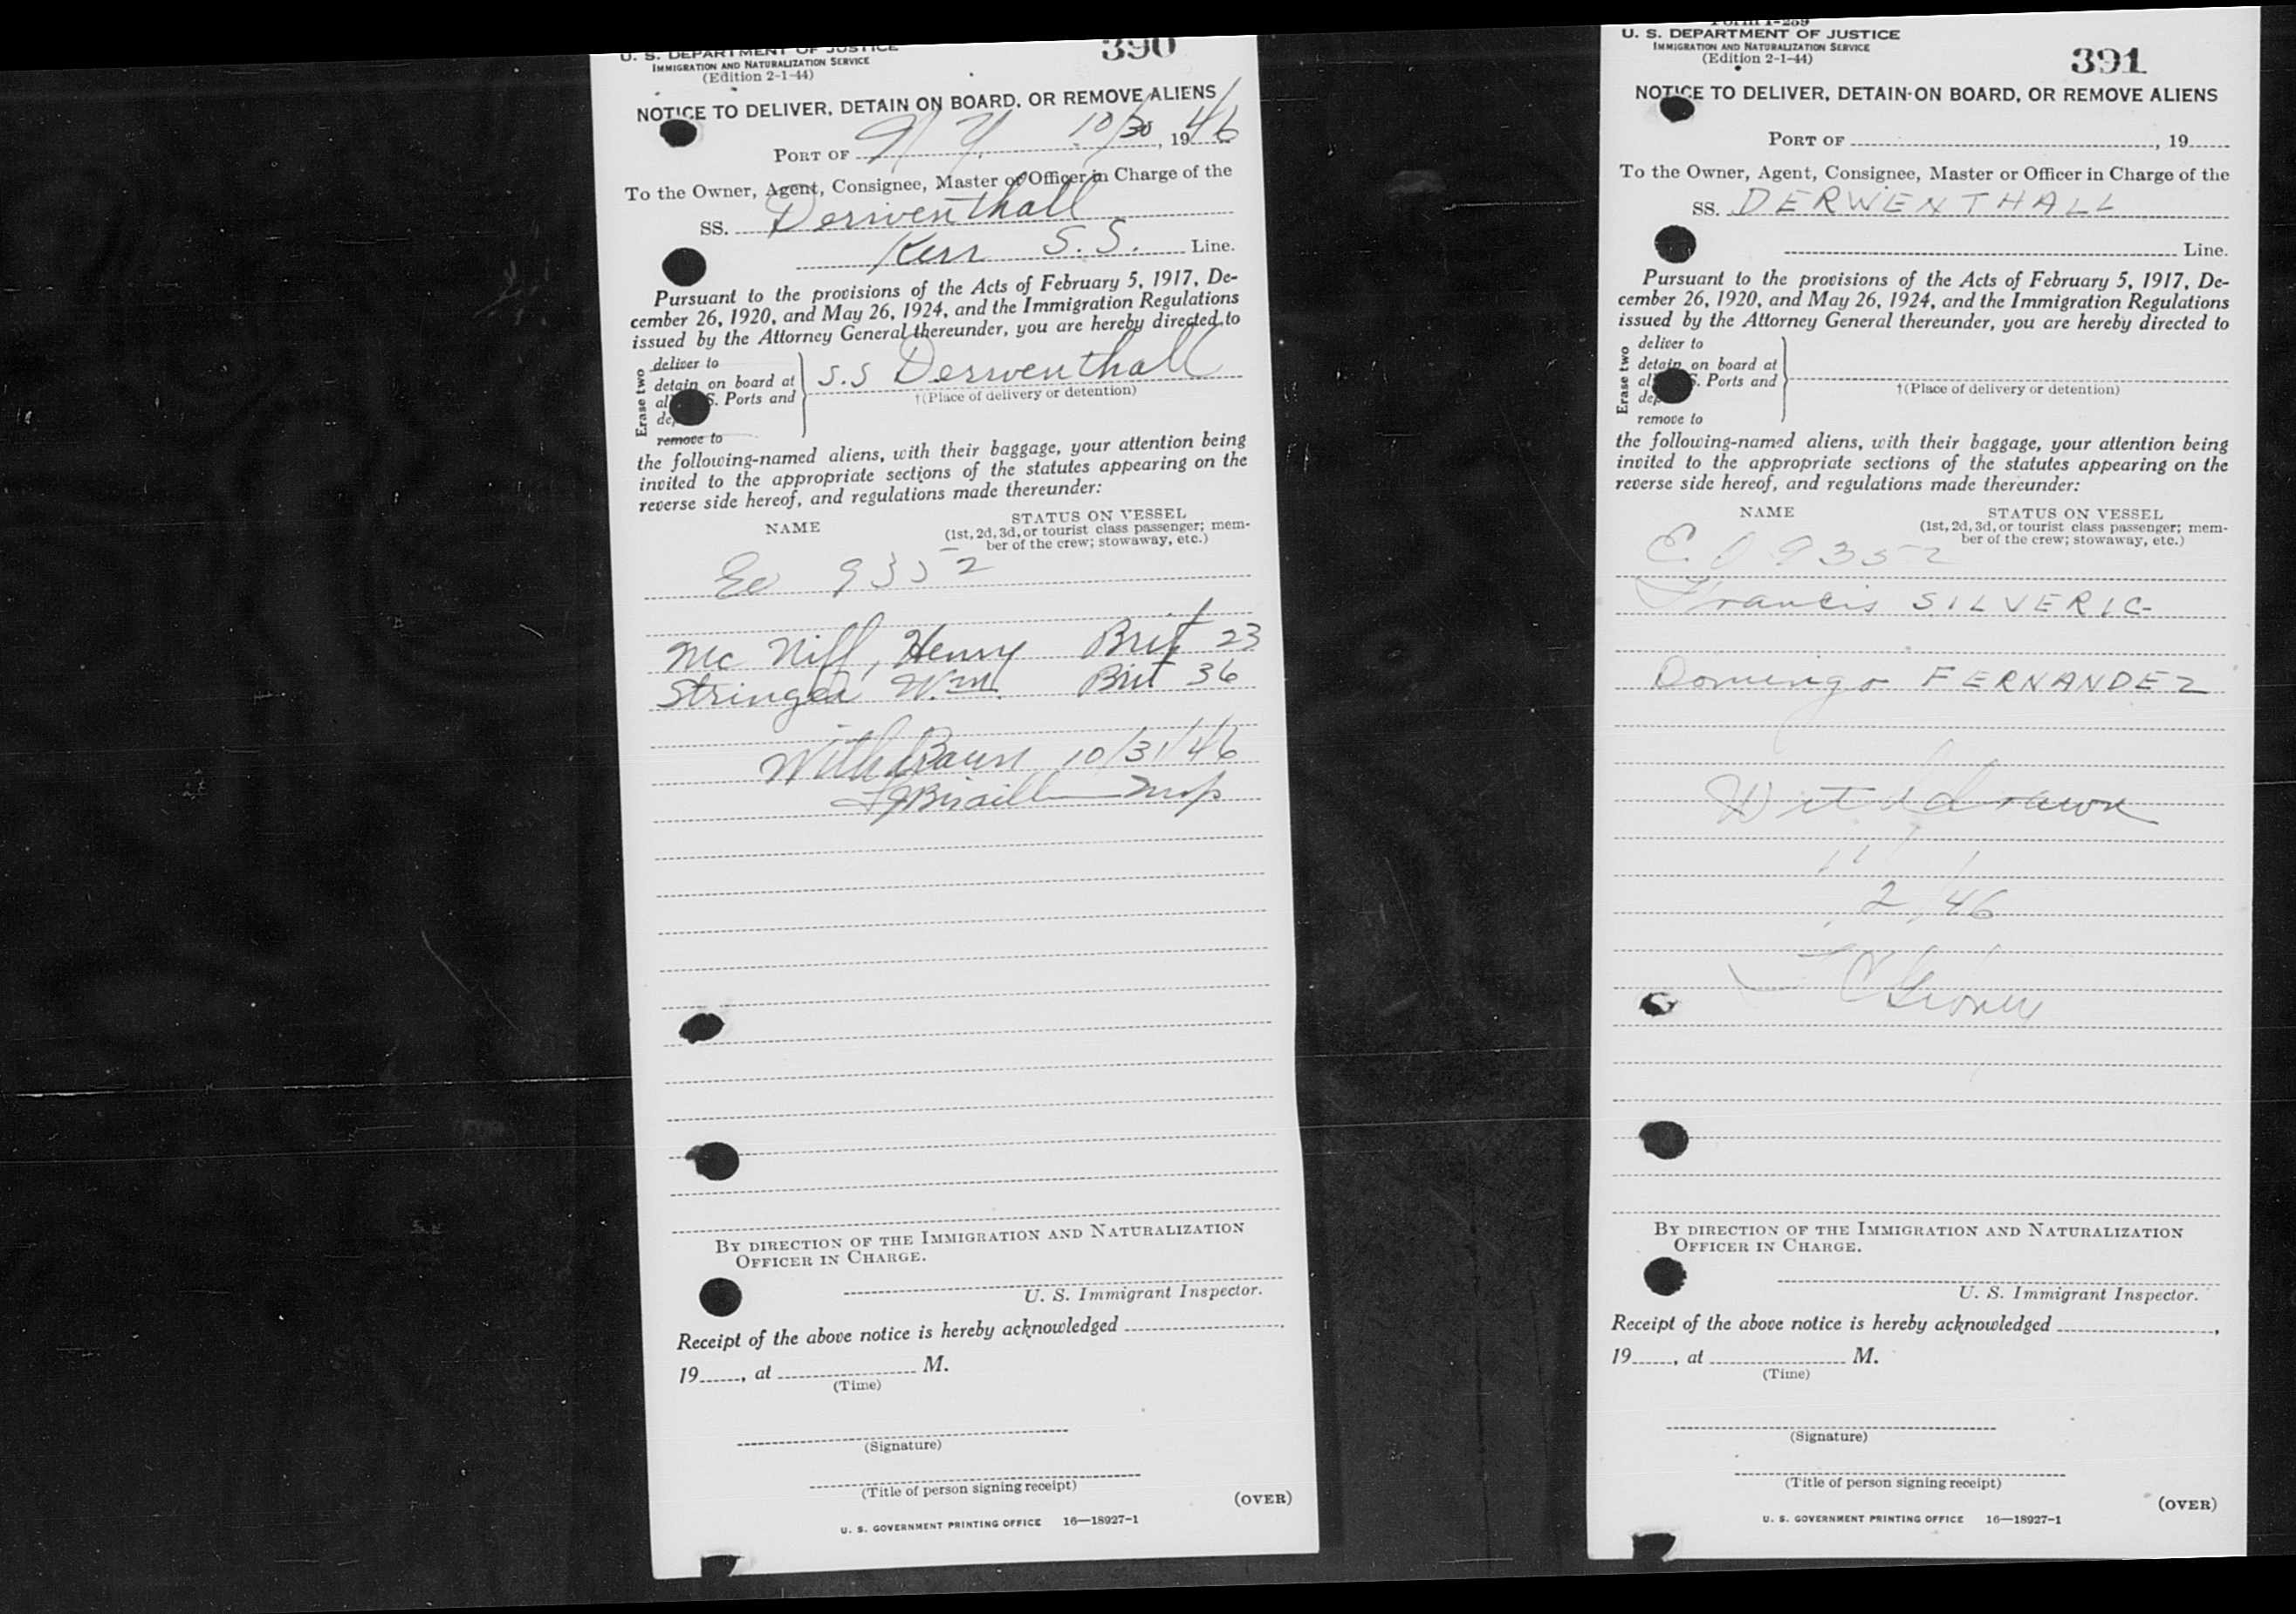 U. S. DEPARTMENT OF JUSTICE
IMMIGRATION AND NATURALIZATION SERVICE
(Edition 2-1-44)
390
NOTICE TO DELIVER, DETAIN ON BOARD, OR REMOVE ALIENS
PORT OF N. Y. 10/30, 1946
To the Owner, Agent, Consignee, Master or Officer in Charge of the
SS. Derwenthall
Kerr S. S. Line.
Pursuant to the provisions of the Acts of February 5, 1917, De-
cember 26, 1920, and May 26, 1924, and the Immigration Regulations
issued by the Attorney General thereunder, you are hereby directed to
Erase two
deliver to
detain on board at
all U. S. Ports and
remove to
S.S Derwenthall
†(Place of delivery or detention)
the following-named aliens, with their baggage, your attention being
invited to the appropriate sections of the statutes appearing on the
reverse side hereof, and regulations made thereunder:
NAME STATUS ON VESSEL
(1st, 2d, 3d, or tourist class passenger; mem-
ber of the crew; stowaway, etc.)
Eo 9352
Mc Niff, Henry Brit 23
Stringer Wm. Brit 36
Withdrawn 10/31/46
Insp
BY DIRECTION OF THE IMMIGRATION AND NATURALIZATION
OFFICER IN CHARGE.
U. S. Immigrant Inspector.
Receipt of the above notice is hereby acknowledged
19, at M.
(Time)
(Signature)
(Title of person signing receipt)
(OVER)
U. S. GOVERNMENT PRINTING OFFICE 16—18927-1
Form I-259
U. S. DEPARTMENT OF JUSTICE
IMMIGRATION AND NATURALIZATION SERVICE
(Edition 2-1-44)
391
NOTICE TO DELIVER, DETAIN ON BOARD, OR REMOVE ALIENS
PORT OF , 19
To the Owner, Agent, Consignee, Master or Officer in Charge of the
SS. DERWENTHALL
Line.
Pursuant to the provisions of the Acts of February 5, 1917, De-
cember 26, 1920, and May 26, 1924, and the Immigration Regulations
issued by the Attorney General thereunder, you are hereby directed to
Erase two
deliver to
detain on board at
all U. S. Ports and
remove to
†(Place of delivery or detention)
the following-named aliens, with their baggage, your attention being
invited to the appropriate sections of the statutes appearing on the
reverse side hereof, and regulations made thereunder:
NAME STATUS ON VESSEL
(1st, 2d, 3d, or tourist class passenger; mem-
ber of the crew; stowaway, etc.)
E.O 9352
Francis SILVERIO
Domingo FERNANDEZ
Withdrawn
11/2/46
BY DIRECTION OF THE IMMIGRATION AND NATURALIZATION
OFFICER IN CHARGE.
U. S. Immigrant Inspector.
Receipt of the above notice is hereby acknowledged ,
19, at M.
(Time)
(Signature)
(Title of person signing receipt)
(OVER)
U. S. GOVERNMENT PRINTING OFFICE 16—18927-1